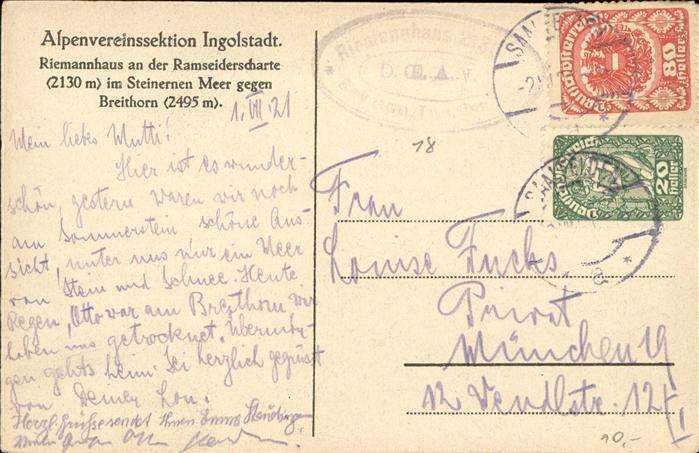 Alpenvereinssektion Ingolstadt.
Riemannhaus an der Ramseiderscharte
(2130 m) im Steinernen Meer gegen
Breithorn (2495 m).
1. VII 21
Mein liebes Mutti!
Hier ist es wunder-
schön, gestern waren wir noch
am Sommerstein schöne Aus-
sicht, unter uns nur ein Meer
von Stein und Schnee. Heute
Regen, Otto war am Breithorn. Wir
haben uns getrocknet. Übermor-
gen gehts heim. Sei herzlich gegrüsst
von Deiner Lou.
Herzl. Grüsse sendet Ihnen Emma
Riemannhaus
D. Oe. A. V.
SAALFELDEN
80
Heller
Deutschösterreich
SAALFELDEN
20
Heller
18
Frau
Louise Fuchs
Privat
München 19
12 Wendlstr. 12/I
10,-